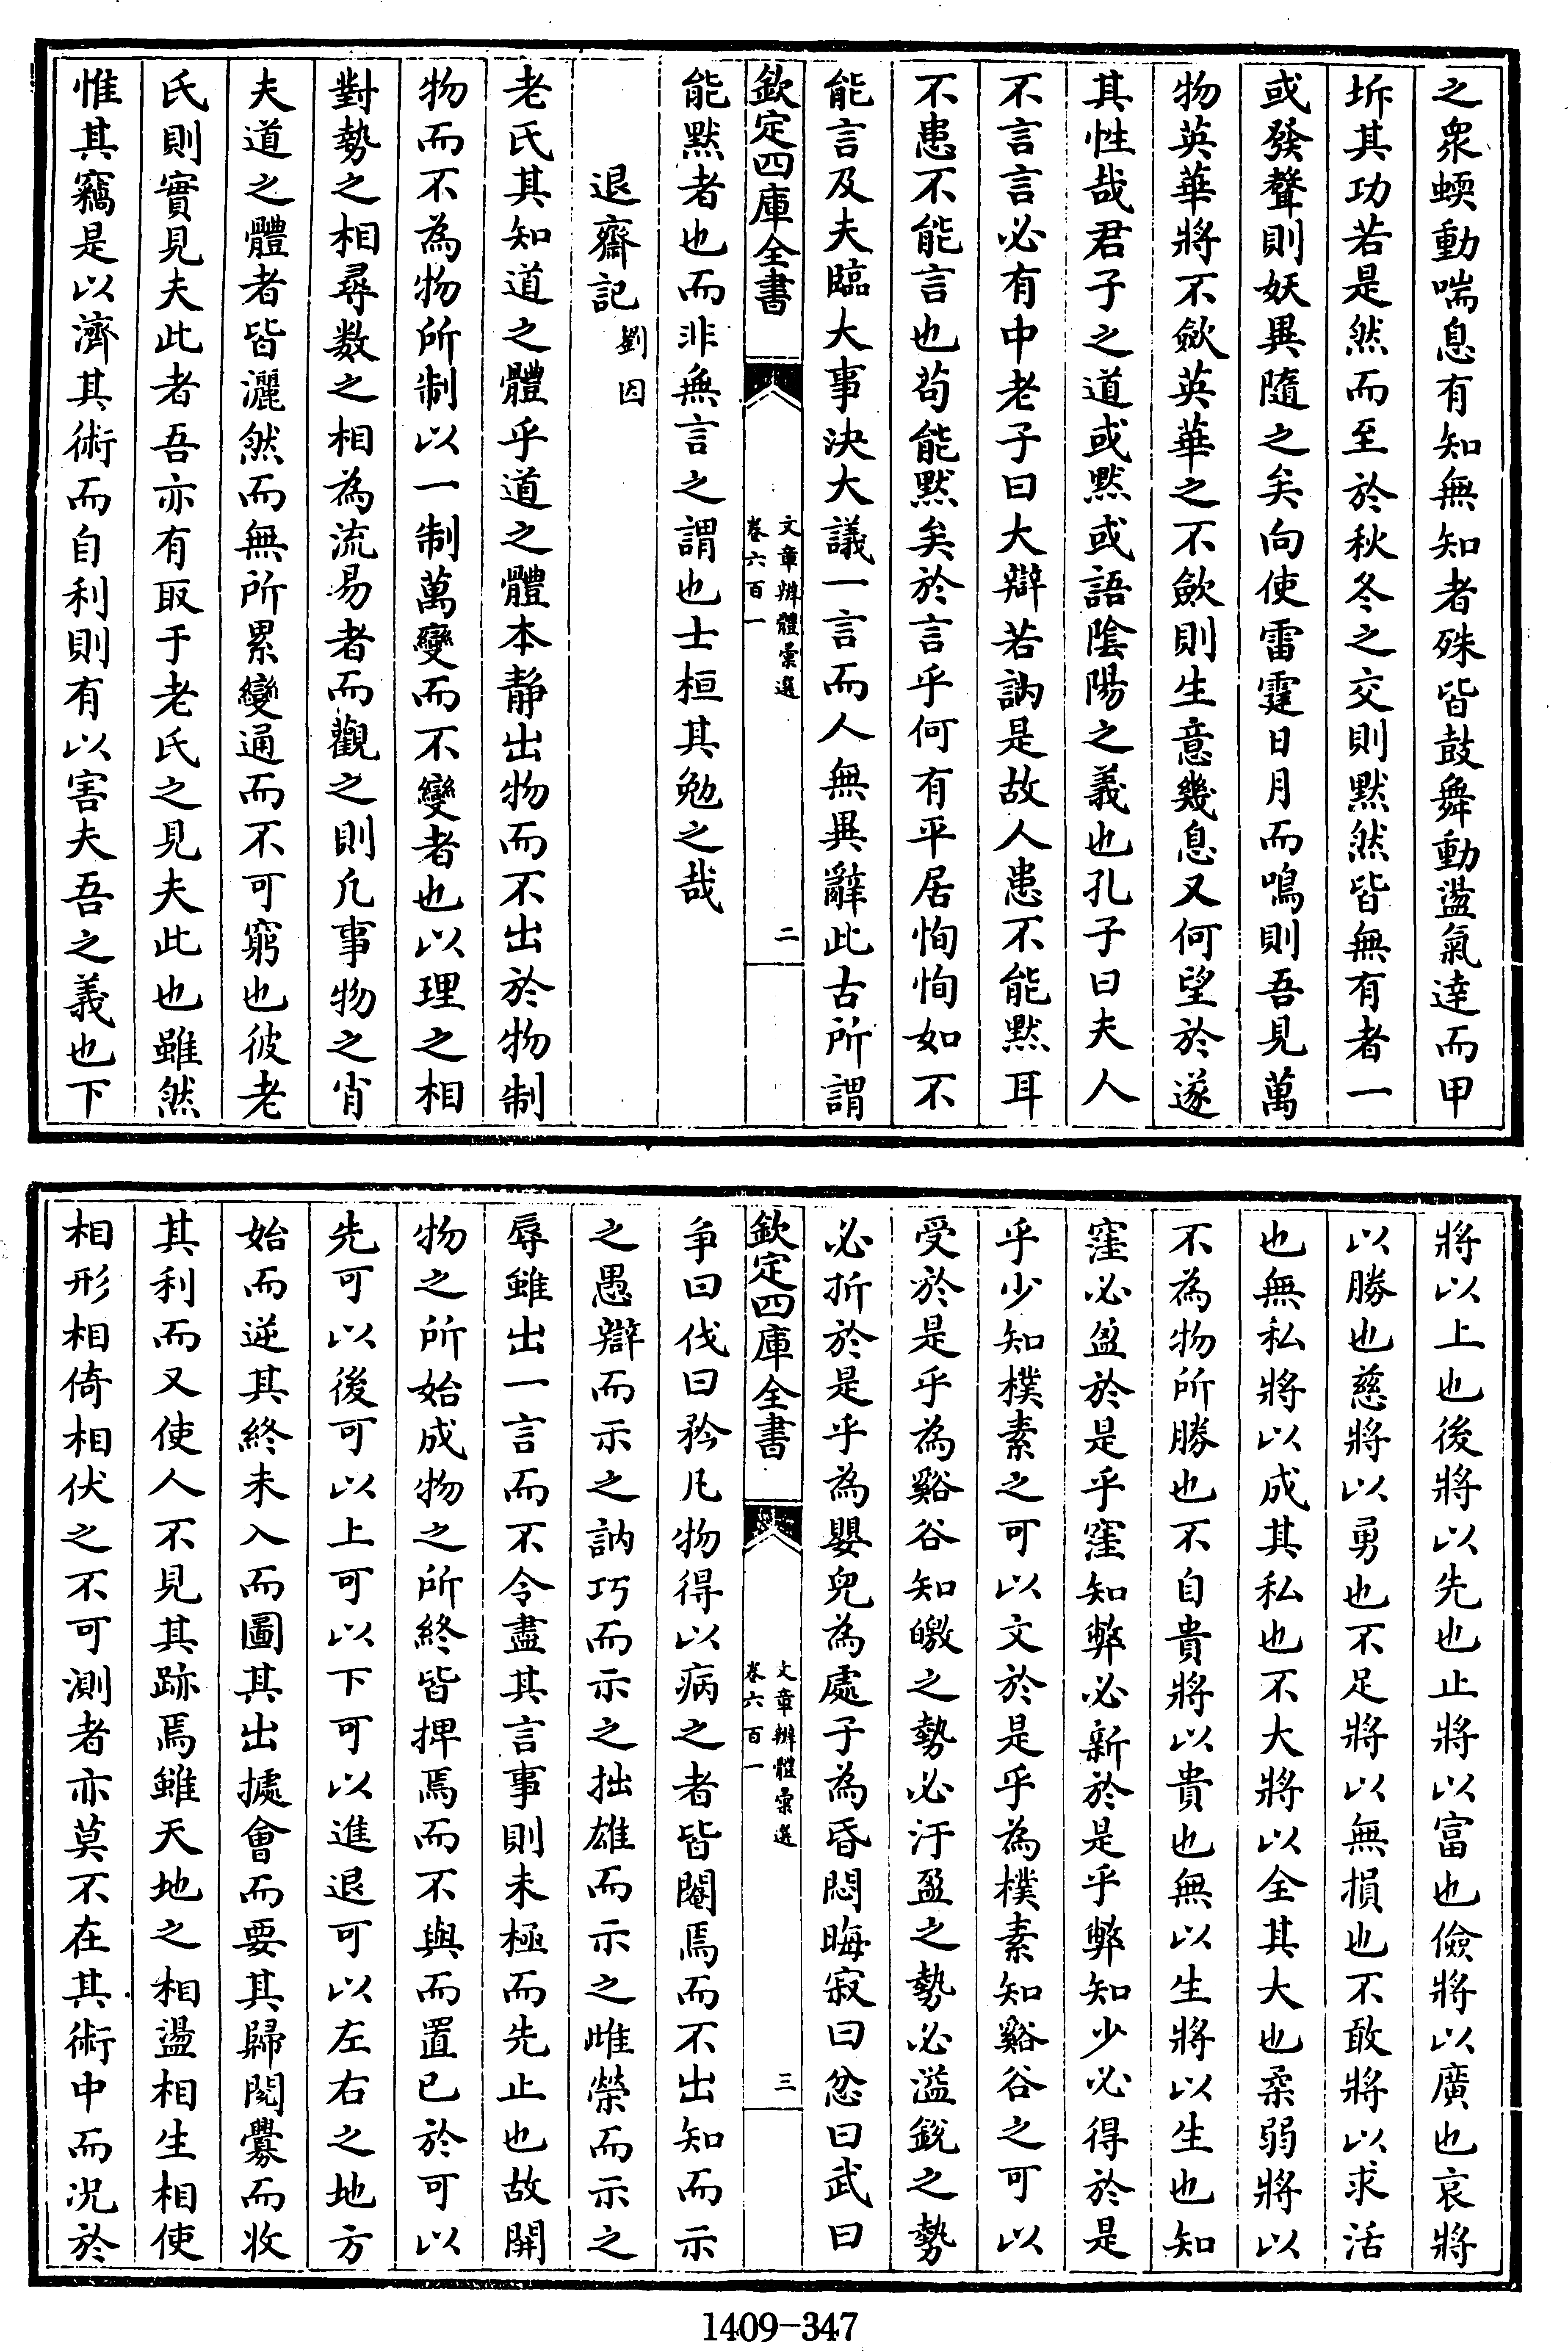 之衆蝡動喘息有知無知者殊皆鼓舞動盪氣達而甲
坼其功若是然而至於秋冬之交則默然皆無有者一
或發聲則妖異隨之矣向使雷霆日月而鳴則吾見萬
物英華將不斂英華之不斂則生意幾息又何望於遂
其性哉君子之道或默或語陰陽之義也孔子曰夫人
不言言必有中老子曰大辯若訥是故人患不能默耳
不患不能言也苟能默矣於言乎何有平居恂恂如不
能言及夫臨大事決大議一言而人無異辭此古所謂
欽定四庫全書
文章辨體彙選
卷六百一
二
能默者也而非無言之謂也士桓其勉之哉
退齋記劉因
老氏其知道之體乎道之體本静出物而不出於物制
物而不為物所制以一制萬變而不變者也以理之相
對勢之相尋數之相為流易者而觀之則凡事物之肖
夫道之體者皆灑然而無所累變通而不可窮也彼老
氏則實見夫此者吾亦有取于老氏之見夫此也雖然
惟其竊是以濟其術而自利則有以害夫吾之義也下
將以上也後將以先也止將以富也儉將以廣也哀將
以勝也慈將以勇也不足將以無損也不敢將以求活
也無私將以成其私也不大將以全其大也柔弱將以
不為物所勝也不自貴將以貴也無以生將以生也知
窪必盈於是乎窪知弊必新於是乎弊知少必得於是
乎少知樸素之可以文於是乎為樸素知谿谷之可以
受於是乎為谿谷知皦之勢必汙盈之勢必溢銳之勢
必折於是乎為嬰兒為處子為昏悶晦寂曰忿曰武曰
欽定四庫全書
文章辨體彙選
卷六百一
三
争曰伐曰矜凡物得以病之者皆閹焉而不出知而示
之愚辯而示之訥巧而示之拙雄而示之雌榮而示之
辱雖出一言而不令盡其言事則未極而先止也故開
物之所始成物之所終皆捭焉而不與而置已於可以
先可以後可以上可以下可以進退可以左右之地方
始而逆其終未入而圖其出據會而要其歸閱釁而收
其利而又使人不見其跡焉雖天地之相盪相生相使
相形相倚相伏之不可測者亦莫不在其術中而况於
1409-347